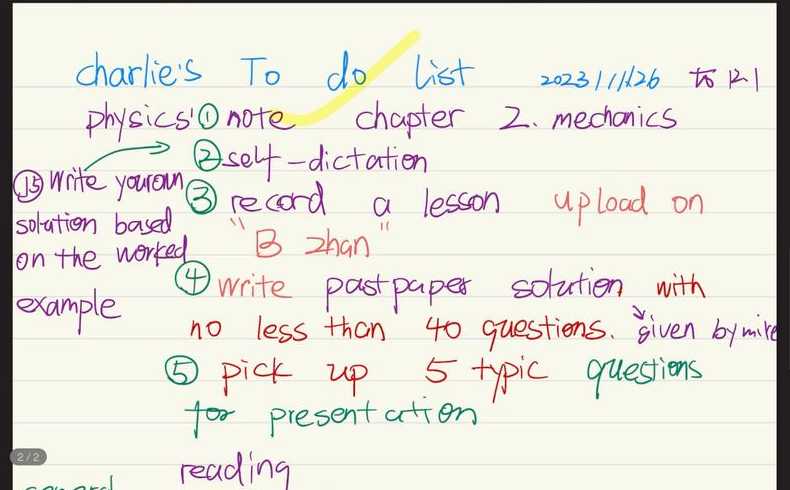 charlie's To do list 2023/11/26 to 12.1
physics: ① note chapter 2. mechanics
② self-dictation
⑮ Write your own
solution based
on the worked
example
③ record a lesson upload on
"B zhan"
④ write pastpaper solution with
no less than 40 questions. given by mike
⑤ pick up 5 typic questions
for presentation
2/2
reading